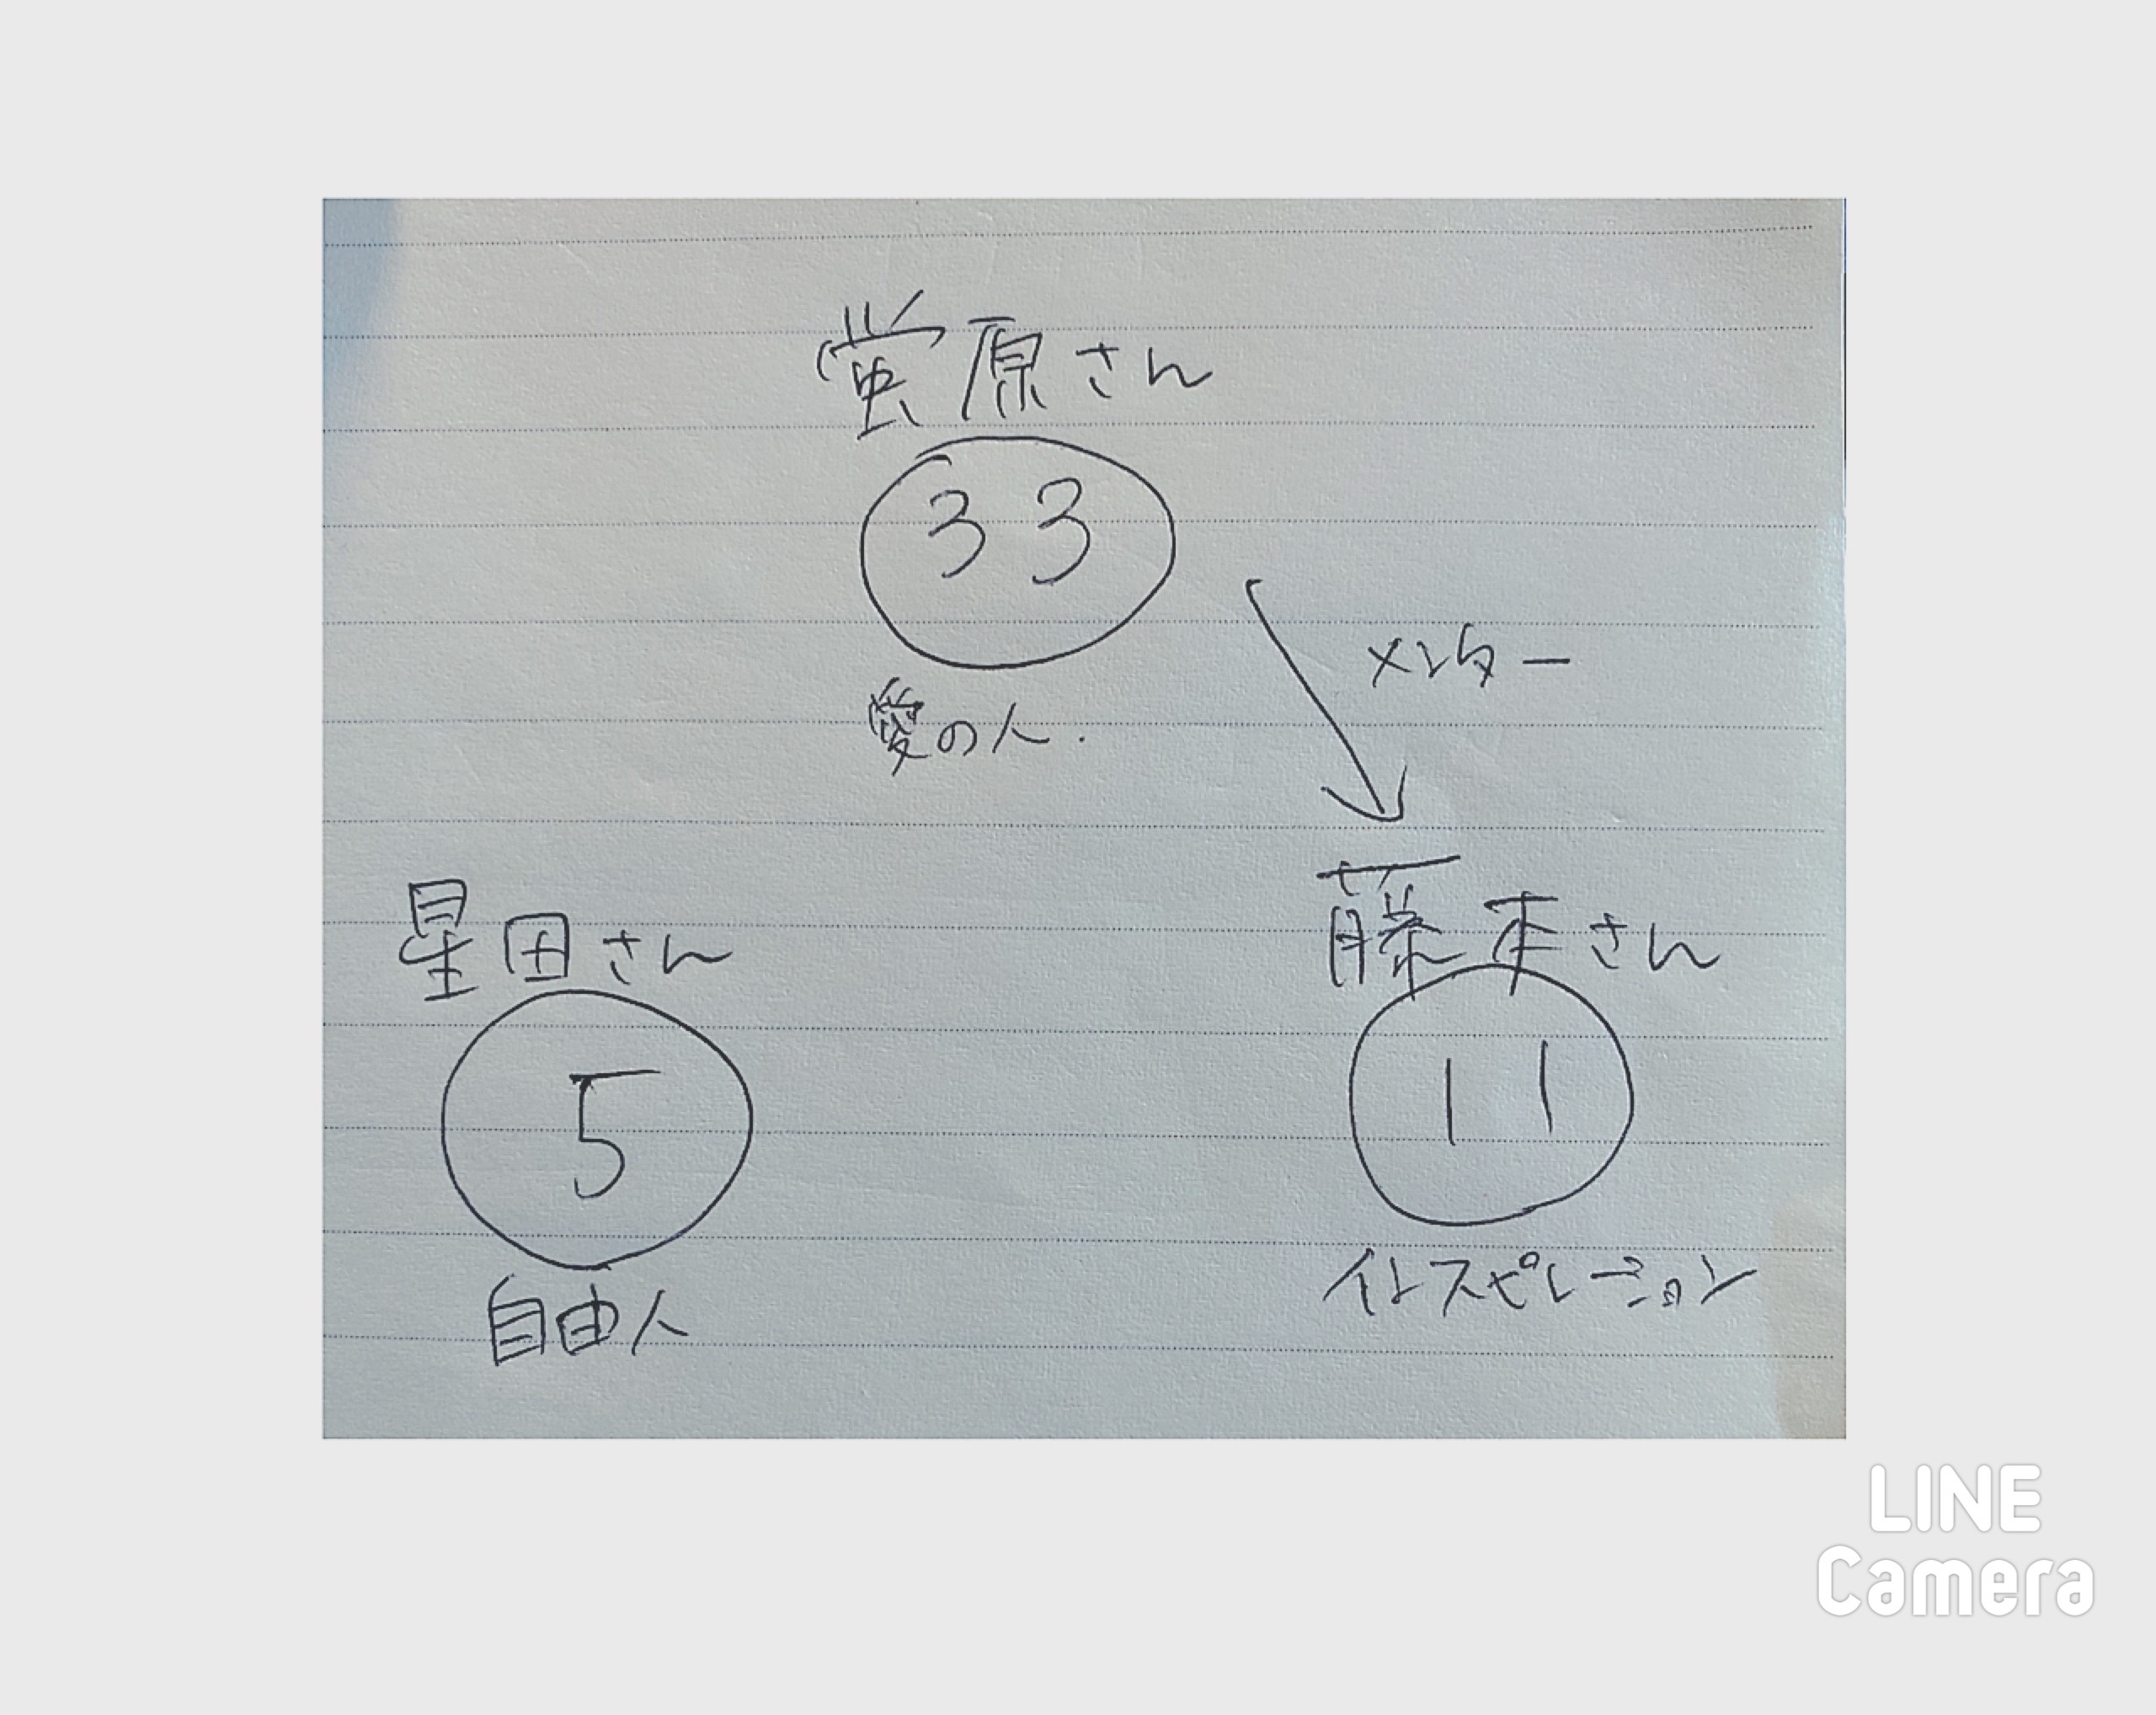 蛍原さん
33
愛の人.
メンター
星田さん
5
自由人
藤本さん
11
インスピレーション
LINE
Camera